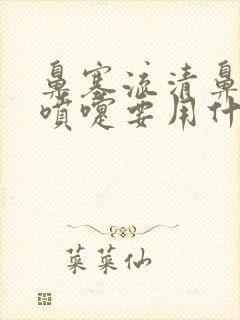 鼻塞流清鼻
喷嚏要用什
菜菜仙